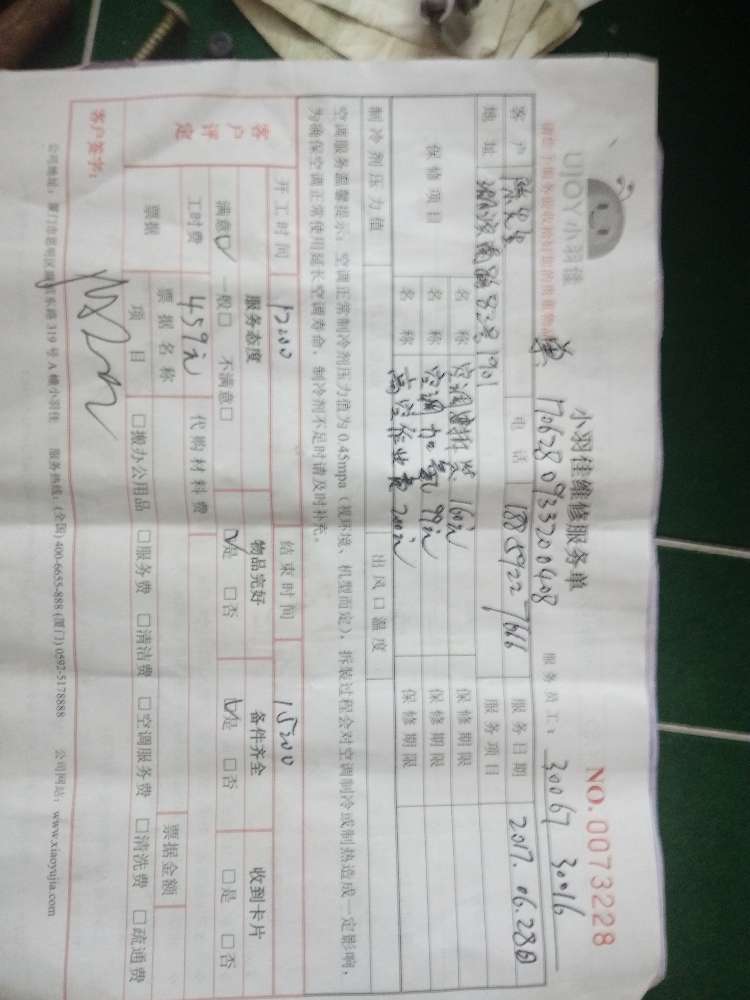 UJOY小羽佳
小羽佳维修服务单
NO.0073228
1706280933200408
服务员工: 30067 30016
客户 陈先生 电话 18859227666 服务日期 2017.06.28日
地址 901 服务项目
保修项目 名称 空调 160元 保修期限
名称 空调加氟 99元 保修期限
名称 高空作业费 200元 保修期限
制冷剂压力值 出风口温度
空调服务温馨提示:空调正常制冷剂压力值为0.45mpa(视环境、机型而定),拆装过程会对空调制冷或制热造成一定影响,
为确保空调正常使用延长空调寿命,制冷剂不足时请及时补充。
开工时间 结束时间 15:00
客户评定 服务态度 物品完好 备件齐全 收到卡片
满意☑ 一般□ 不满意□ ☑是 □否 ☑是 □否 □是 □否
工时费 459元 代购材料费
票据 票据名称 票据金额
项目 □搬办公用品 □服务费 □清洁费 □空调服务费 □清洗费 □疏通费
客户签字:
公司地址:厦门市思明区 东路319号A幢小羽佳 服务热线:(全国)400-6655-888 (厦门)0592-5178888 公司网站:www.xiaoyujia.com